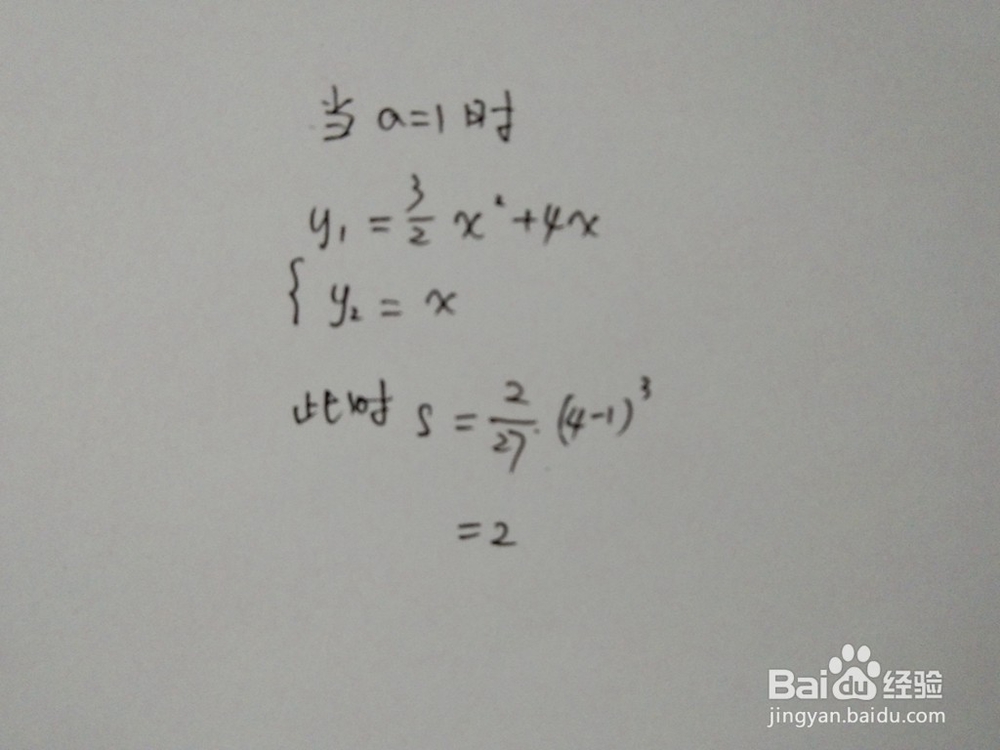 当 a=1 时
y₁ = 3/2 x² + 4x
{ y₂ = x
此时 S = 2/27 · (4-1)³
= 2
Bai du 经验
jingyan.baidu.com